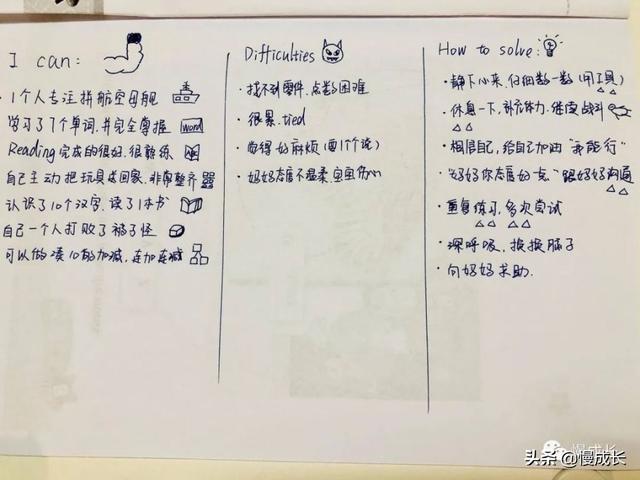 I can:
1个人专注拼航空母舰
学习了7个单词,并完全掌握 word
Reading完成的很好,很熟练
自己主动把玩具送回家,非常整齐
认识了10个汉字,读了1本书
自己一个人打败了格子怪
可以做凑10的加减,连加连减
Difficulties
·找不到零件,点数困难
·很累.tied
·觉得好麻烦(要1个说)
·妈妈态度不温柔,宝宝伤心
How to solve:
·静下心来,仔细数一数(用工具)
·休息一下,补充体力,继续战斗
·相信自己,给自己加油"我能行"
·"妈妈你态度好一点"跟妈妈沟通
·重复练习,多次尝试
·深呼吸,换换脑子
·向妈妈求助.
慢成长
头条 @慢成长